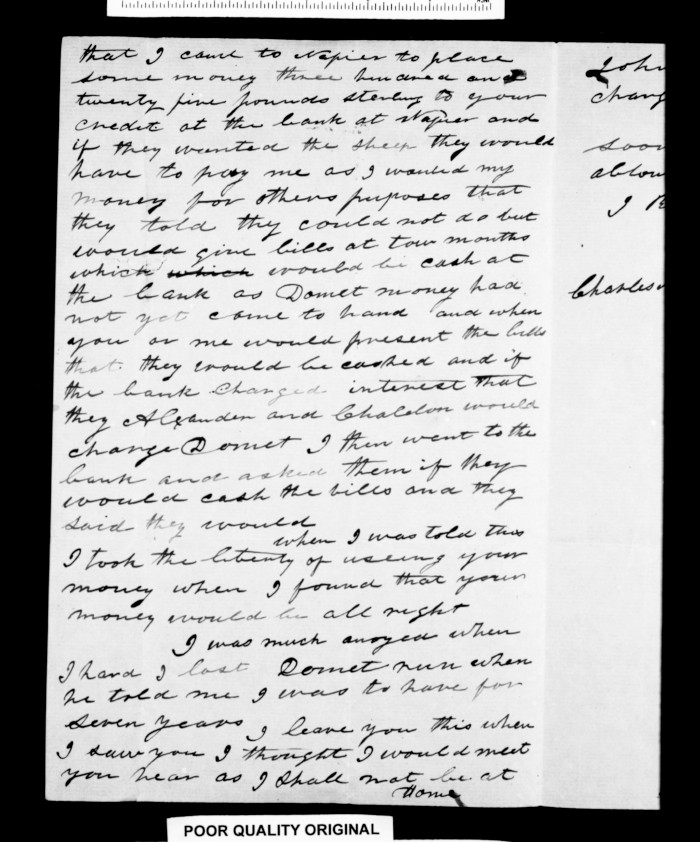 that I came to Napier to place
some money three hundred and
twenty five pounds sterling to your
credit at the bank at Napier and
if they wanted the sheep they would
have to pay me as I wanted my
money for others puposes that
they told they could not do but
would give bills at tow months
which which would be cash at
the bank as Domet money had
not yet come to hand and when
you or me would present the bills
that they would be cashed and if
the bank charged interest that
they Alexander and would
change Domet I then went to the
bank and asked them if they
would cash the bills and they
said they would
when I was told this
I took the liberty of useing your
money when I found that your
money would be all right
I was much anoyed when
I hard I lost Domet run when
he told me I was to have for
seven years I leave you this when
I saw you I thought I would meet
you hear as I shall not be at
Home
John
charg
soon
I
Charles
POOR QUALITY ORIGINAL